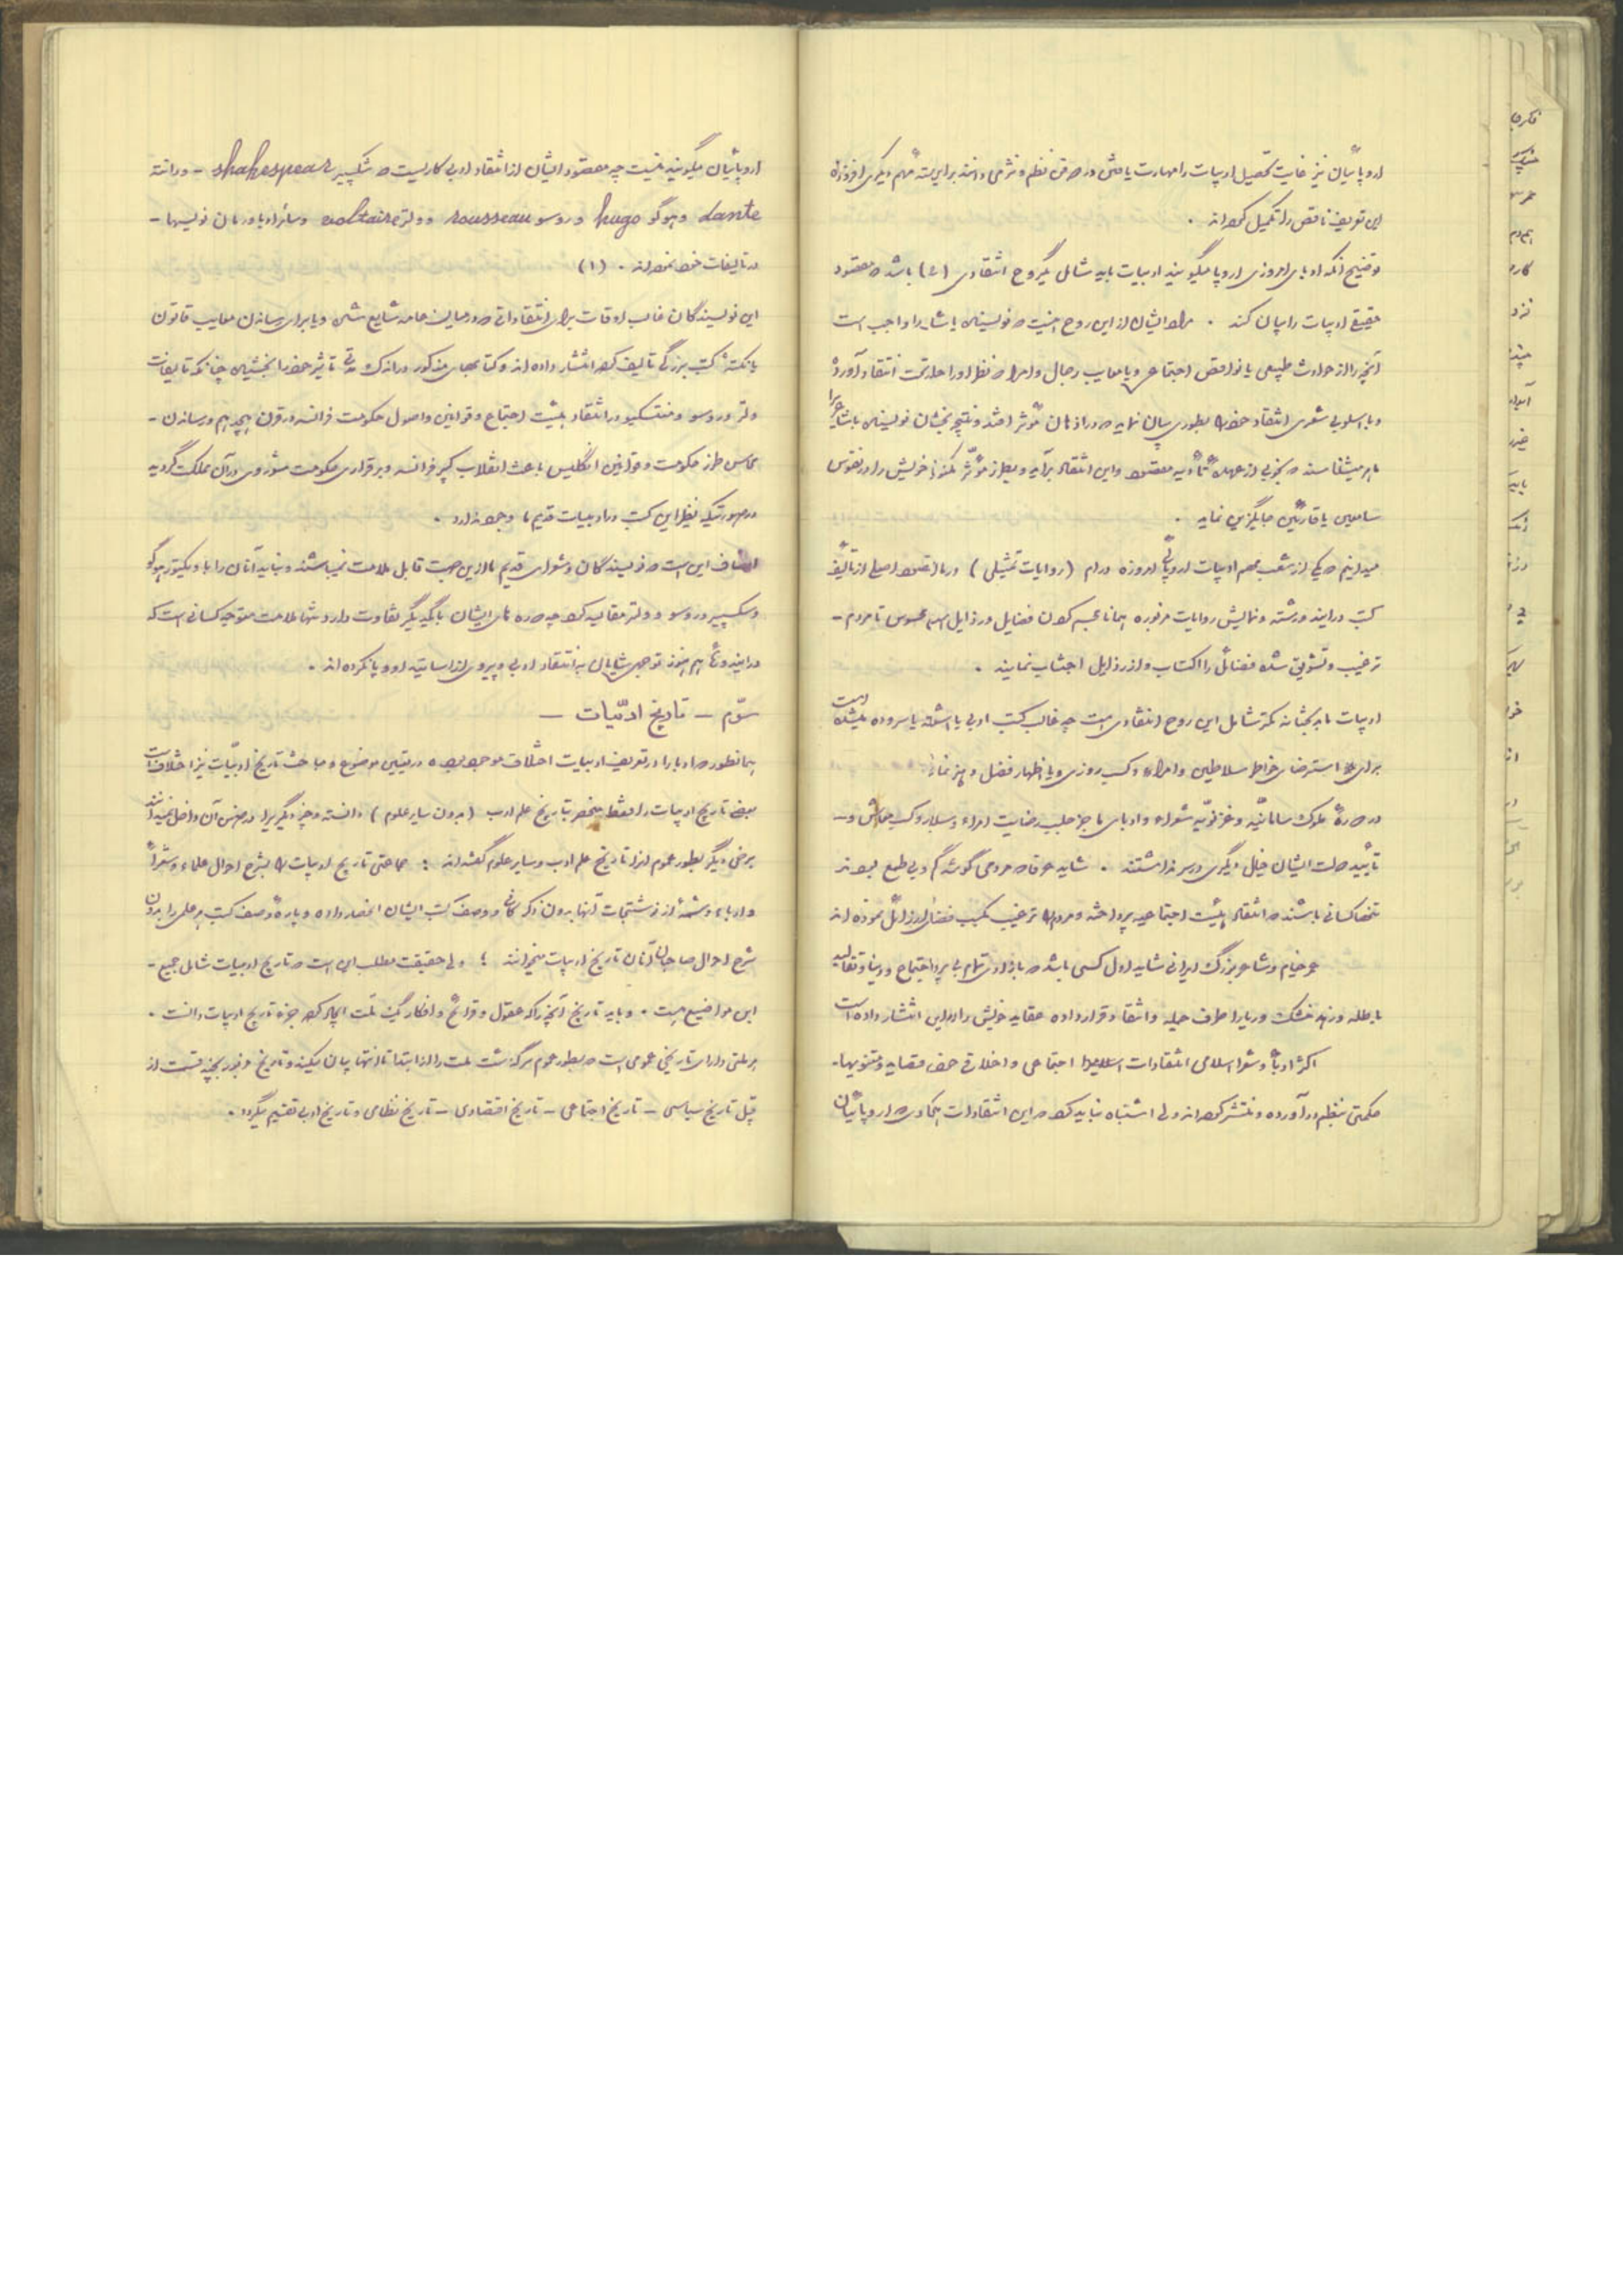 اروپائیان نیز غایت تحصیل ادبیات را مهارت یافتن در دو فن نظم و نثر می دانند بر این سه مهم دیگری افزوده
این تعریف ناقص را تکمیل کرده اند .
توضیح آنکه ادبای امروزی اروپا میگویند ادبیات باید شامل یک روح انتقادی (۲) باشد که مقصود
حقیقی ادبیات را بیان کند . مراد ایشان از این روح اینست که نویسنده یا شاعر را واجب است
آنچه را از حوادث طبیعی یا نواقص اجتماعی و یا معایب رجال و امراء در نظر او را حله تحت انتقاد آورده
و با اسلوبی شعری انتقاد خود را بطوری بیان نماید که در اذهان مؤثر افتد و نتیجه بخشان نویسنده یا شاعر
ماهر میشناسند که بخوبی از عهده تأدیه مقصود و این انتقاد برآید و بطرز مؤثر مکنونا خویش را در نفوس
سامعین یا قارئین جایگزین نماید .
میدانیم که یکی از شعب مهم ادبیات اروپائی امروزه درام (روایات تمثیلی) در ما مقصود اصلی از تألیف
کتب در این رشته و نمایش روایات مزبوره همانا مجسم کردن فضایل و رذایل محسوس تا مردم –
ترغیب و تشویق شده فضائل را اکتساب و از رذایل اجتناب نمایند .
ادبیات ما بدبختانه کمتر شامل این روح انتقادی است چه غالب کتب ادبی یا اشعار یا سروده میشده است
برای استرضای خاطر سلاطین و امراء و کسب روزی و یا اظهار فضل و هنر نمائی
در دوره ملوک سامانیه و غزنویه شعراء و ادبای ما جز جلب رضایت امراء و سلاطین و کسب معاش و –
تأیید صلت ایشان خیال دیگری در سر نداشتند . شاید عرفا که مردمی گوشه گیر و بی طمع بودند
تنها کسانی باشند که انتقاد هیئت اجتماعیه پرداخته و مردم را ترغیب بکسب فضائل و رذائل نموده اند
عمر خیام و شاعر بزرگ ایرانی شاید اول کسی باشد که با آزادی تمام بی پروا اجتماع و دنیا و تقالید
باطله و زهد خشک و ریا را طرف حمله و انتقاد قرار داده عقاید خویش را در این انتشار داده است
اکثر ادبا و شعرا اسلامی انتقادات اجتماعی و اخلاقی در ضمن قصاید و مثنویها –
حکمتی بنظم در آورده و منتشر کرده اند ولی اشتباه نباید کرد که این انتقادات آنکه دوره اروپائیان
اروپائیان میگویند نیست چه مقصود ایشان از انتقاد ادبی کاریست که شکسپیر shakespear – و دانته
dante و هوگو hugo و روسو rousseau و ولتر voltaire و سائر ادبا و رمان نویسها –
در تالیفات خود نموده اند . (۱)
این نویسندگان غالب اوقات برای انتقاداتی که در میان عامه شایع شده و یا برای رساندن معایب قانون
یا نکته کتب بزرگی تالیف کرده انتشار داده اند و کتابهای مذکور در اندک مدتی تاثیر خود را بخشیده چنانکه تالیفات
ولتر و روسو و منتسکیو در انتقاد هیئت اجتماع و قوانین و اصول حکومت فرانسه در قرن هیجدهم و رساندن –
محاسن طرز حکومت و قوانین انگلیس باعث انقلاب کبیر فرانسه و برقراری حکومت مشروطی در آن مملکت گردید
در صورتیکه نظیر این کتب در ادبیات قدیم ما وجود ندارد .
انصاف این است که نویسندگان و شعرای قدیم ما از این جهت قابل ملامت نمیباشند و نباید آنان را با ویکتور هوگو
و شکسپیر و روسو و ولتر مقایسه کرد چه دوره های ایشان با یکدیگر تفاوت دارد و تنها ملامت متوجه کسانی است که
در این دوره هم هنوز توجهی شایان به انتقاد ادبی و پیروی از اساتید اروپا نکرده اند .
سوّم – تاریخ ادبّیات –
همانطور که ادبا را در تعریف ادبیات اختلاف موجود بود در تعیین موضوع و مباحث تاریخ ادبیّات نیز اختلاف است
بعضی تاریخ ادبیات را فقط منحصر بتاریخ علم ادب (بدون سایر علوم) دانسته و چیز دیگری را در ضمن آن داخل نمیدانند
برخی دیگر بطور عموم از تاریخ علم ادب و سایر علوم گفته اند ؛ جماعتی تاریخ ادبیات را بشرح احوال علماء و شعراء
و ادباء و شمه از نوشتجات آنها بدون ذکر و وصف کتب ایشان انحصار داده و پاره وصف کتب هر علمی را بدون
شرح احوال صاحبان آنان تاریخ ادبیات میخوانند ؛ ولی حقیقت مطلب این است که تاریخ ادبیات شامل جمیع –
این مواضیع هست . و باید تاریخ آنچه را که عقول و قرائح و افکار یک ملت ایجاد کرده جزء تاریخ ادبیات دانست .
هر ملتی دارای تاریخی عمومی است که بطور عموم سرگذشت ملت را از ابتدا تا انتها بیان میکند و تاریخ مزبور بچند قسمت از
قبیل تاریخ سیاسی – تاریخ اجتماعی – تاریخ اقتصادی – تاریخ نظامی و تاریخ ادبی تقسیم میگردد .